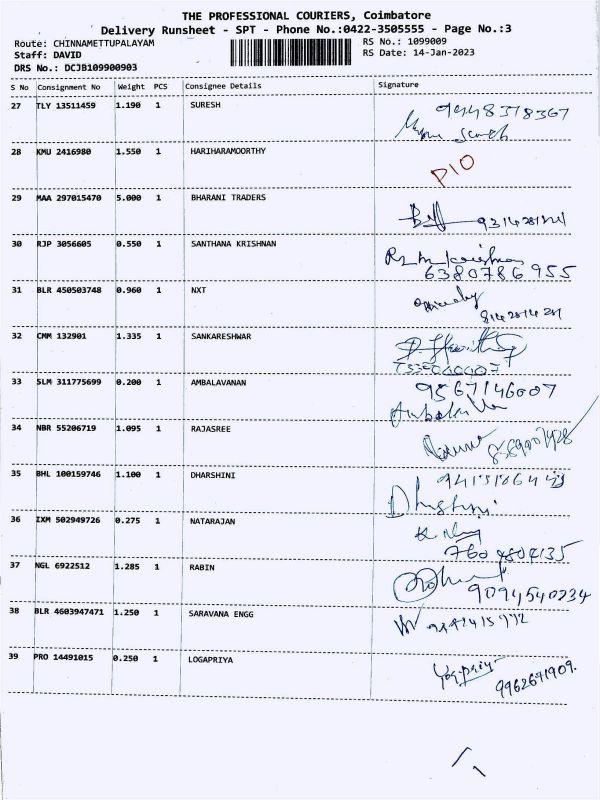 THE PROFESSIONAL COURIERS, Coimbatore
Delivery Runsheet - SPT - Phone No.:0422-3505555 - Page No.:3
Route: CHINNAMETTUPALAYAM RS No.: 1099009
Staff: DAVID RS Date: 14-Jan-2023
DRS No.: DCJB109900903
S No Consignment No Weight PCS Consignee Details Signature
27 TLY 13511459 1.190 1 SURESH
28 KMU 2416980 1.550 1 HARIHARAMOORTHY
PIO
29 MAA 297015470 5.000 1 BHARANI TRADERS
30 RJP 3056605 0.550 1 SANTHANA KRISHNAN
6380786955
31 BLR 450503748 0.960 1 NXT
32 CMM 132901 1.335 1 SANKARESHWAR
33 SLM 311775699 0.200 1 AMBALAVANAN 9567146007
34 NBR 55206719 1.095 1 RAJASREE
35 BHL 100159746 1.100 1 DHARSHINI
36 IXM 502949726 0.275 1 NATARAJAN
7604804135
37 NGL 6922512 1.285 1 RABIN
9094540234
38 BLR 4603947471 1.250 1 SARAVANA ENGG
39 PRO 14491015 0.250 1 LOGAPRIYA
9962671909.